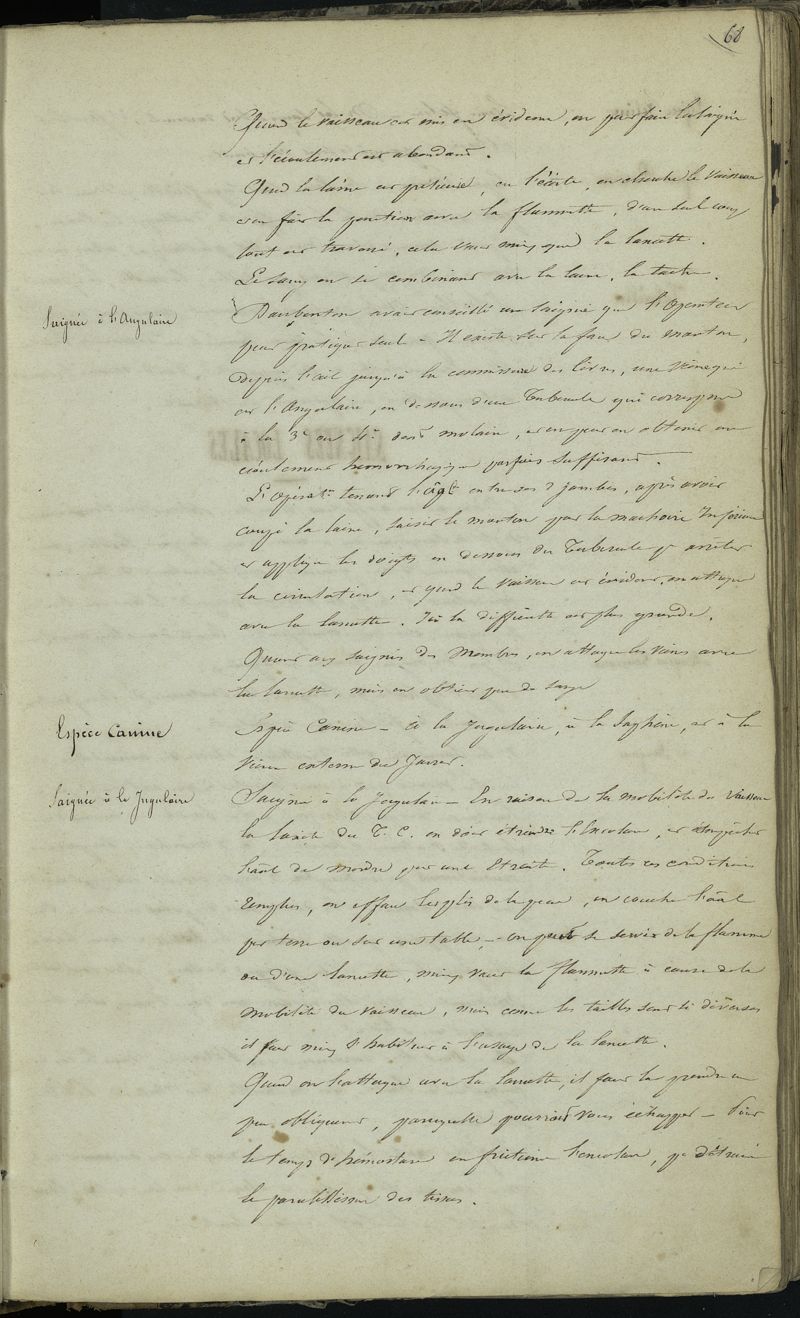 60
Quand le vaisseau est mis en évidence, on peut faire la saignée
et l'écoulement est abondant.
Quand la laine est précieuse, on l'écarte, on cherche le vaisseau
et on fait la ponction avec la flammette, d'un seul coup
tout est traversé, cela vaut mieux que la lancette.
Le sang en se combinant avec la laine, la tache.
Saignée à l'Angulaire
Daubenton avait conseillé une saignée que l'Opérateur
peut pratiquer seul - Il existe sur la face du mouton,
depuis l'œil jusqu'à la commissure des lèvres, une veine qui
est l'Angulaire, en dessous d'un Tubercule qui correspond
à la 3e ou 4e dent molaire, et on peut en obtenir un
écoulement hémorrhagique parfois suffisant.
L'Opératr tenant l'ânl entre ses 2 jambes, après avoir
coupé la laine, saisit le mouton par la machoire Inférieure
et applique les doigts en dessous du Tubercule pr arrêter
la circulation, et quand le vaisseau est évident, on attaque
avec la lancette. Ici la difficulté est plus grande.
Quant aux saignées des Membres, on attaque les veines avec
la lancette, mais on obtient peu de sang
Espèce Canine
Espèce Canine - à la Jugulaire, à la Saphène, et à la
veine externe du Jarret.
Saignée à la Jugulaire
Saignée à la Jugulaire - En raison de la mobilité du vaisseau
la laxité du T. C. on doit étendre l'Encolure, et empêcher
l'ânl de mordre par une Etreinte. Toutes ces conditions
remplies, on efface les plis de la peau, on couche l'ânl
par terre ou sur une table - On peut se servir de la flamme
ou d'une lancette, mieux vaut la flammette à cause de la
mobilité du vaisseau, mais comme les tailles sont si diverses
il faut mieux s'habituer à l'usage de la lancette.
Quand on l'attaque avec la lancette, il faut la prendre un
peu obliquement, parcequ'elle pourrait vous échapper - Pour
le temps d'hémostase on frictionne l'encolure, pr détruire
le parallélisme des tissus.